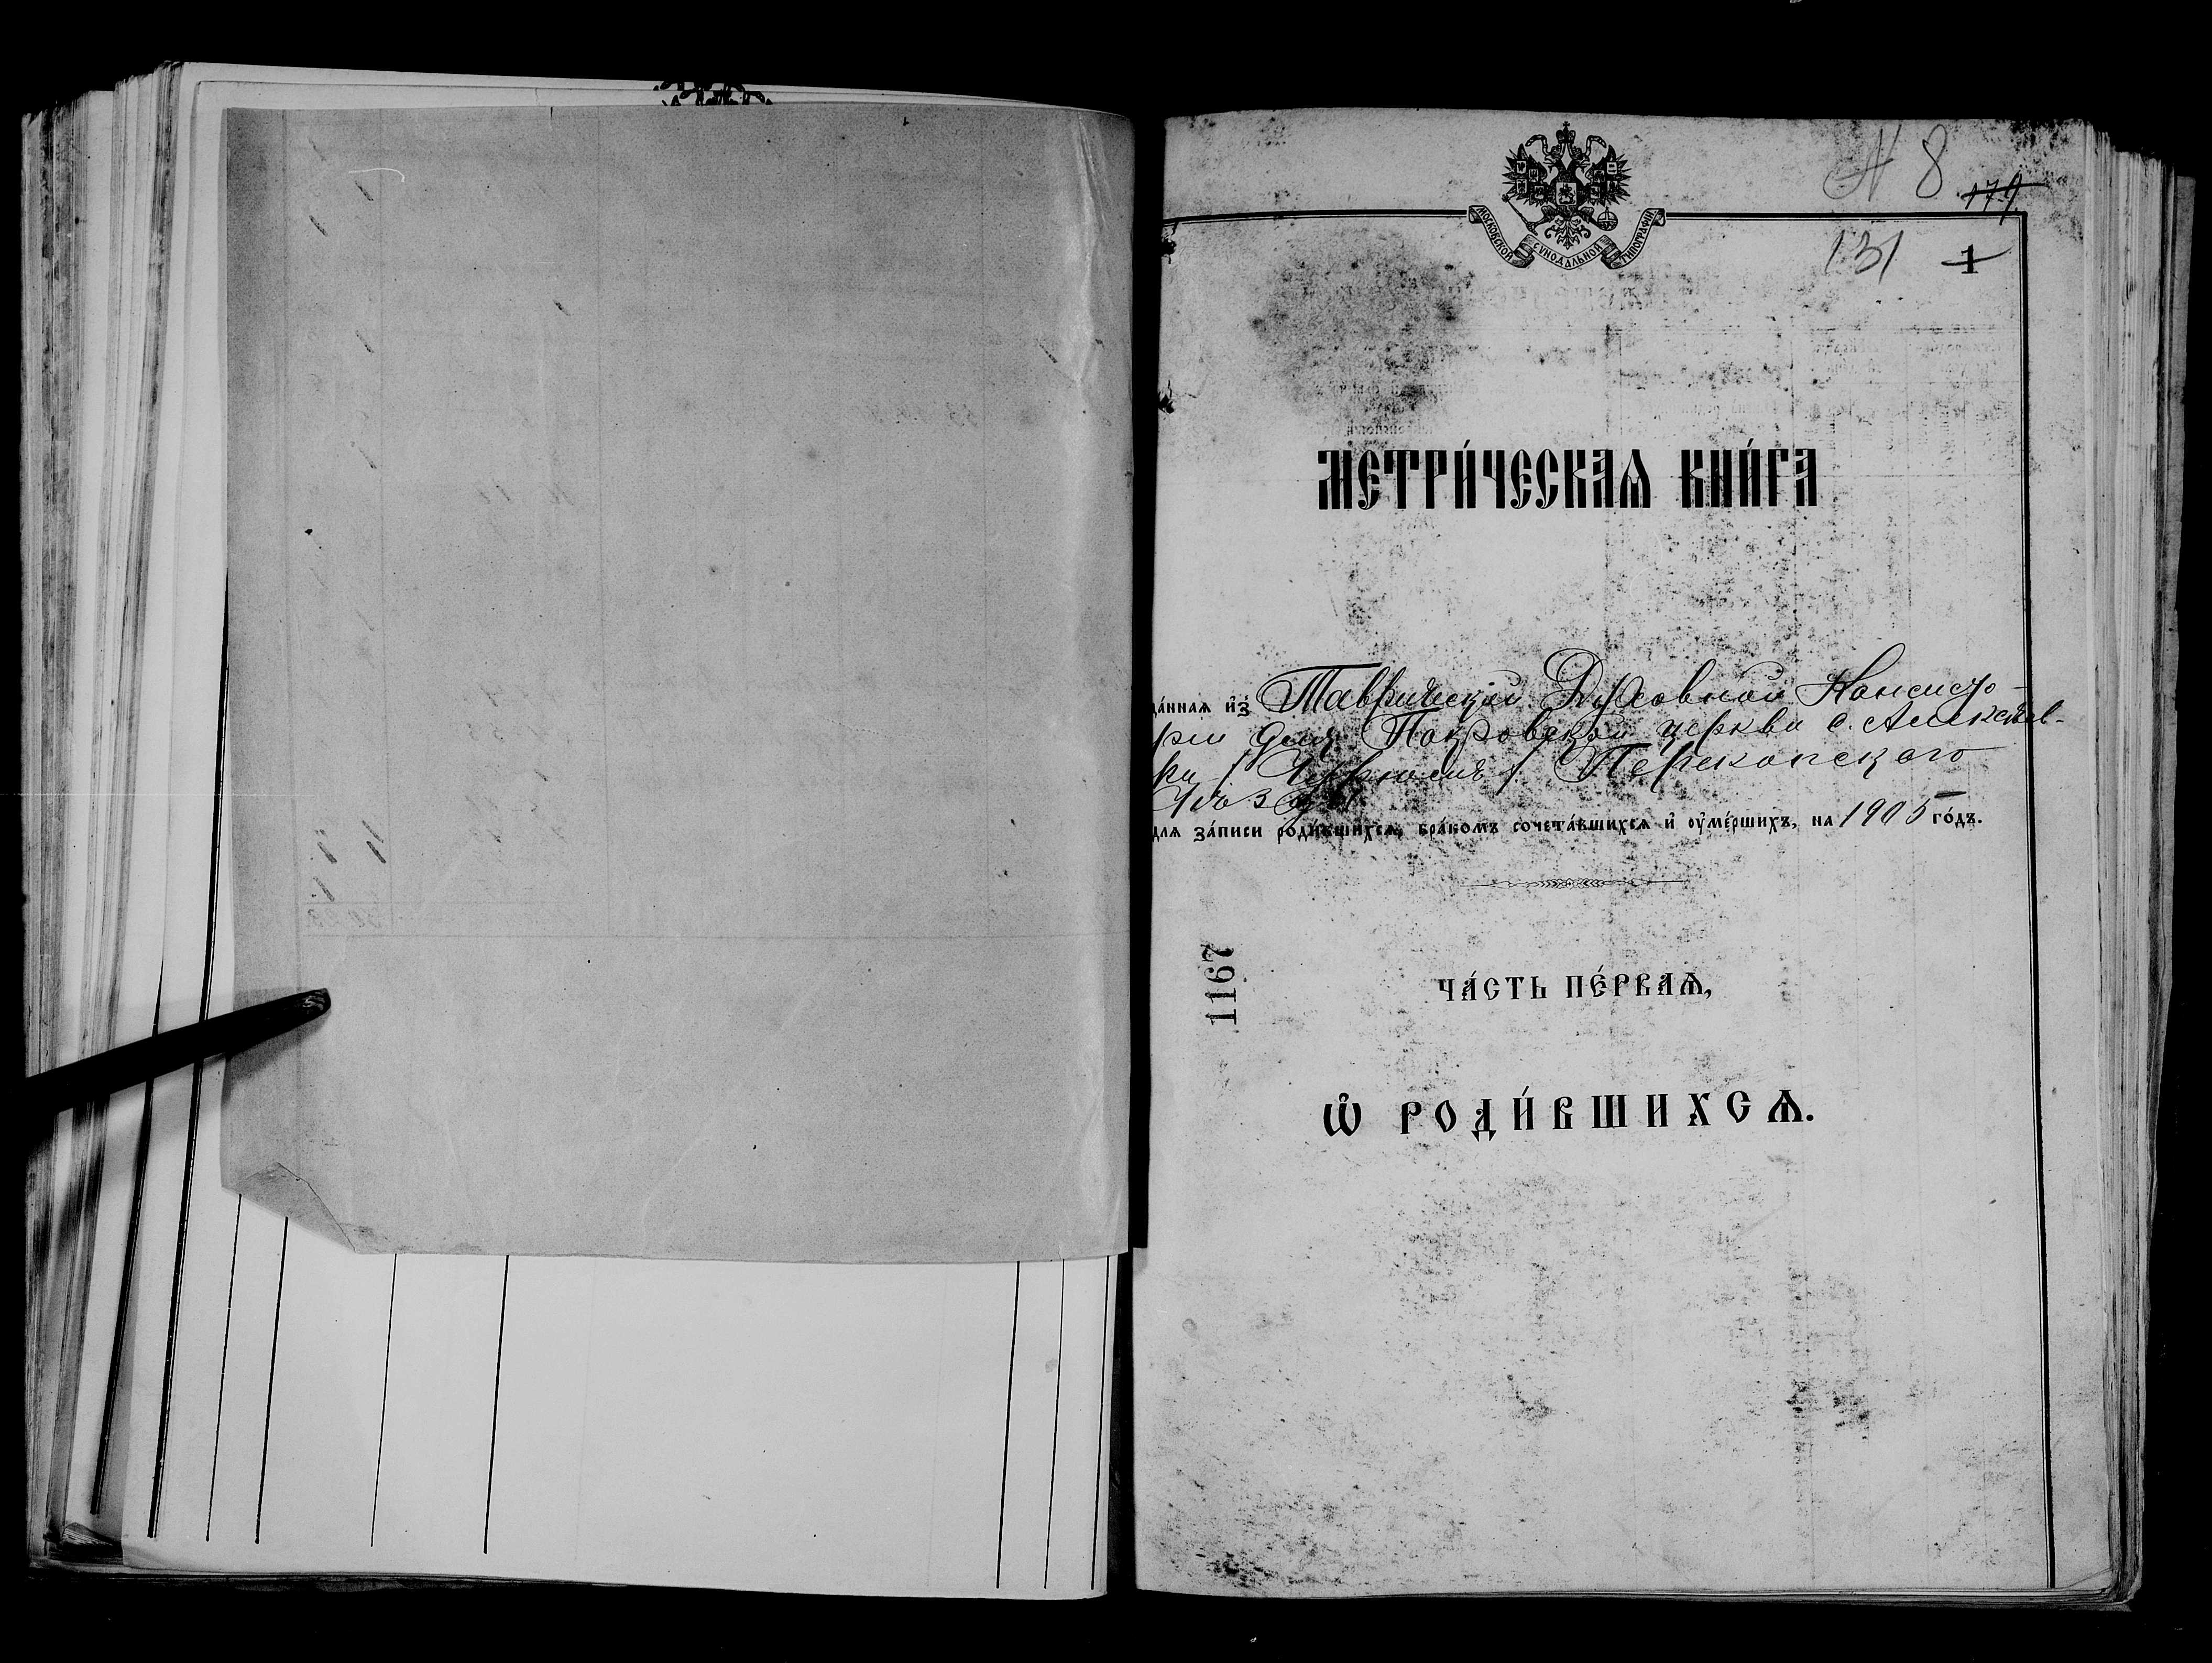 N 8
179
МОСКОВСКОЙ СѴНОДАЛЬНОЙ ТИПОГРАФІИ
131 1
МЕТРИ́ЧЕСКАѦ КНИ́ГА
да́ннаѧ и҆з̾ Таврической Духовной Консисто-
ріи для Покровской церкви с. Алексѣев-
ки Перекопскаго
Уѣзда
для за́писи роди́вшихсѧ, бра́комъ сочета́вшихсѧ и҆ оу҆ме́ршихъ, на 1905 го́дъ.
1167
ЧА́СТЬ ПЕ́РВАѦ,
Ѡ҆ РОДИ́ВШИХСѦ.